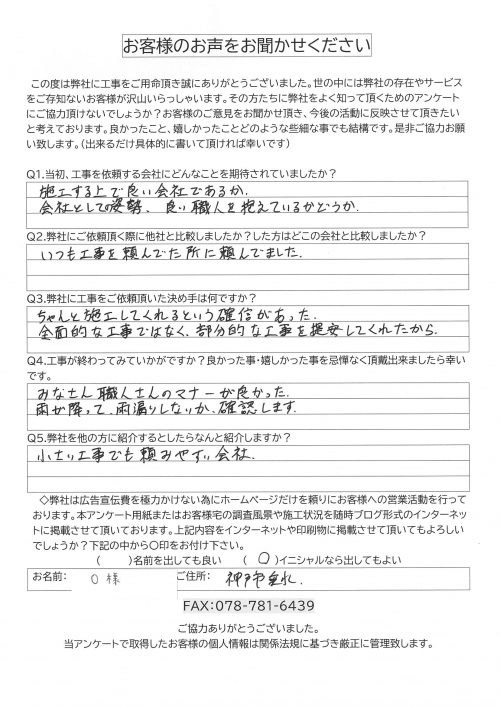 お客様のお声をお聞かせください
この度は弊社に工事をご用命頂き誠にありがとうございました。世の中には弊社の存在やサービス
をご存知ないお客様が沢山いらっしゃいます。その方たちに弊社をよく知って頂くためのアンケート
にご協力頂けないでしょうか？お客様のご意見をお聞かせ頂き、今後の活動に反映させて頂きたい
と考えております。良かったこと、嬉しかったことどのような些細な事でも結構です。是非ご協力お願
い致します。（出来るだけ具体的に書いて頂ければ幸いです）
Q1.当初、工事を依頼する会社にどんなことを期待されていましたか？
施工する上で良い会社であるか.
会社としての姿勢、良い職人を抱えているかどうか.
Q2.弊社にご依頼頂く際に他社と比較しましたか？した方はどこの会社と比較しましたか？
いつも工事を頼んでた所に頼んでました.
Q3.弊社に工事をご依頼頂いた決め手は何ですか？
ちゃんと施工してくれるという確信があった.
全面的な工事ではなく、部分的な工事を提案してくれたから.
Q4.工事が終わってみていかがですか？良かった事・嬉しかった事を忌憚なく頂戴出来ましたら幸い
です。
みなさん職人さんのマナーが良かった.
雨が降って、雨漏りしないか、確認します.
Q5.弊社を他の方に紹介するとしたらなんと紹介しますか？
小さい工事でも頼みやすい会社.
◇弊社は広告宣伝費を極力かけない為にホームページだけを頼りにお客様への営業活動を行って
おります。本アンケート用紙またはお客様宅の調査風景や施工状況を随時ブログ形式のインターネッ
トに掲載させて頂いております。上記内容をインターネットや印刷物に掲載させて頂いてもよろしい
でしょうか？下記の中から〇印をお付け下さい。
（　　）名前を出しても良い　（　〇　）イニシャルなら出してもよい
お名前：　O 様　ご住所：　神戸市垂水.
FAX:078-781-6439
ご協力ありがとうございました。
当アンケートで取得したお客様の個人情報は関係法規に基づき厳正に管理致します。